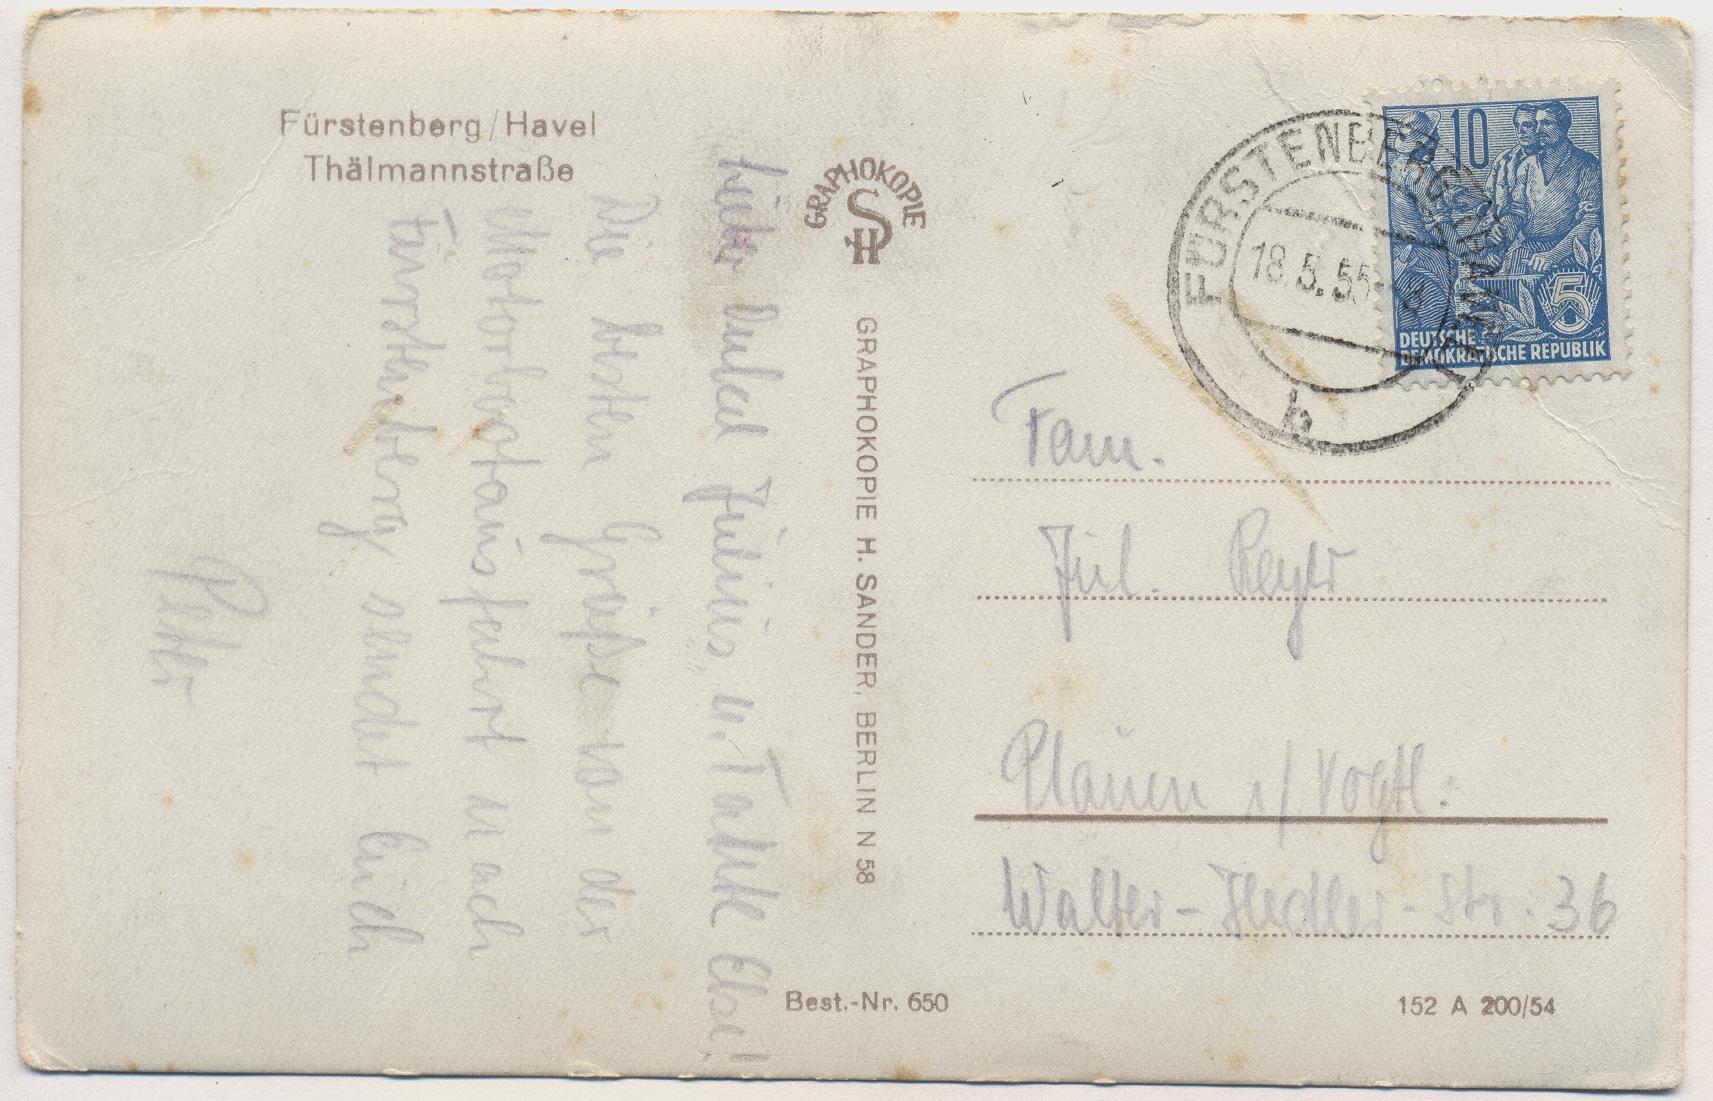 Fürstenberg/Havel
Thälmannstraße
Lieber Onkel Julius, u. Tante Else!
Die besten Grüße von der
Motorbootausfahrt nach
Fürstenberg sendet Euch
Peter
GRAPHOKOPIE
HS
GRAPHOKOPIE H. SANDER, BERLIN N 58
FÜRSTENBERG (HAVEL)
18.5.55
b
10
5
DEUTSCHE
DEMOKRATISCHE REPUBLIK
Fam.
Jul.
Plauen i/Vogtl.
Walter- -Str. 36
Best.-Nr. 650
152 A 200/54